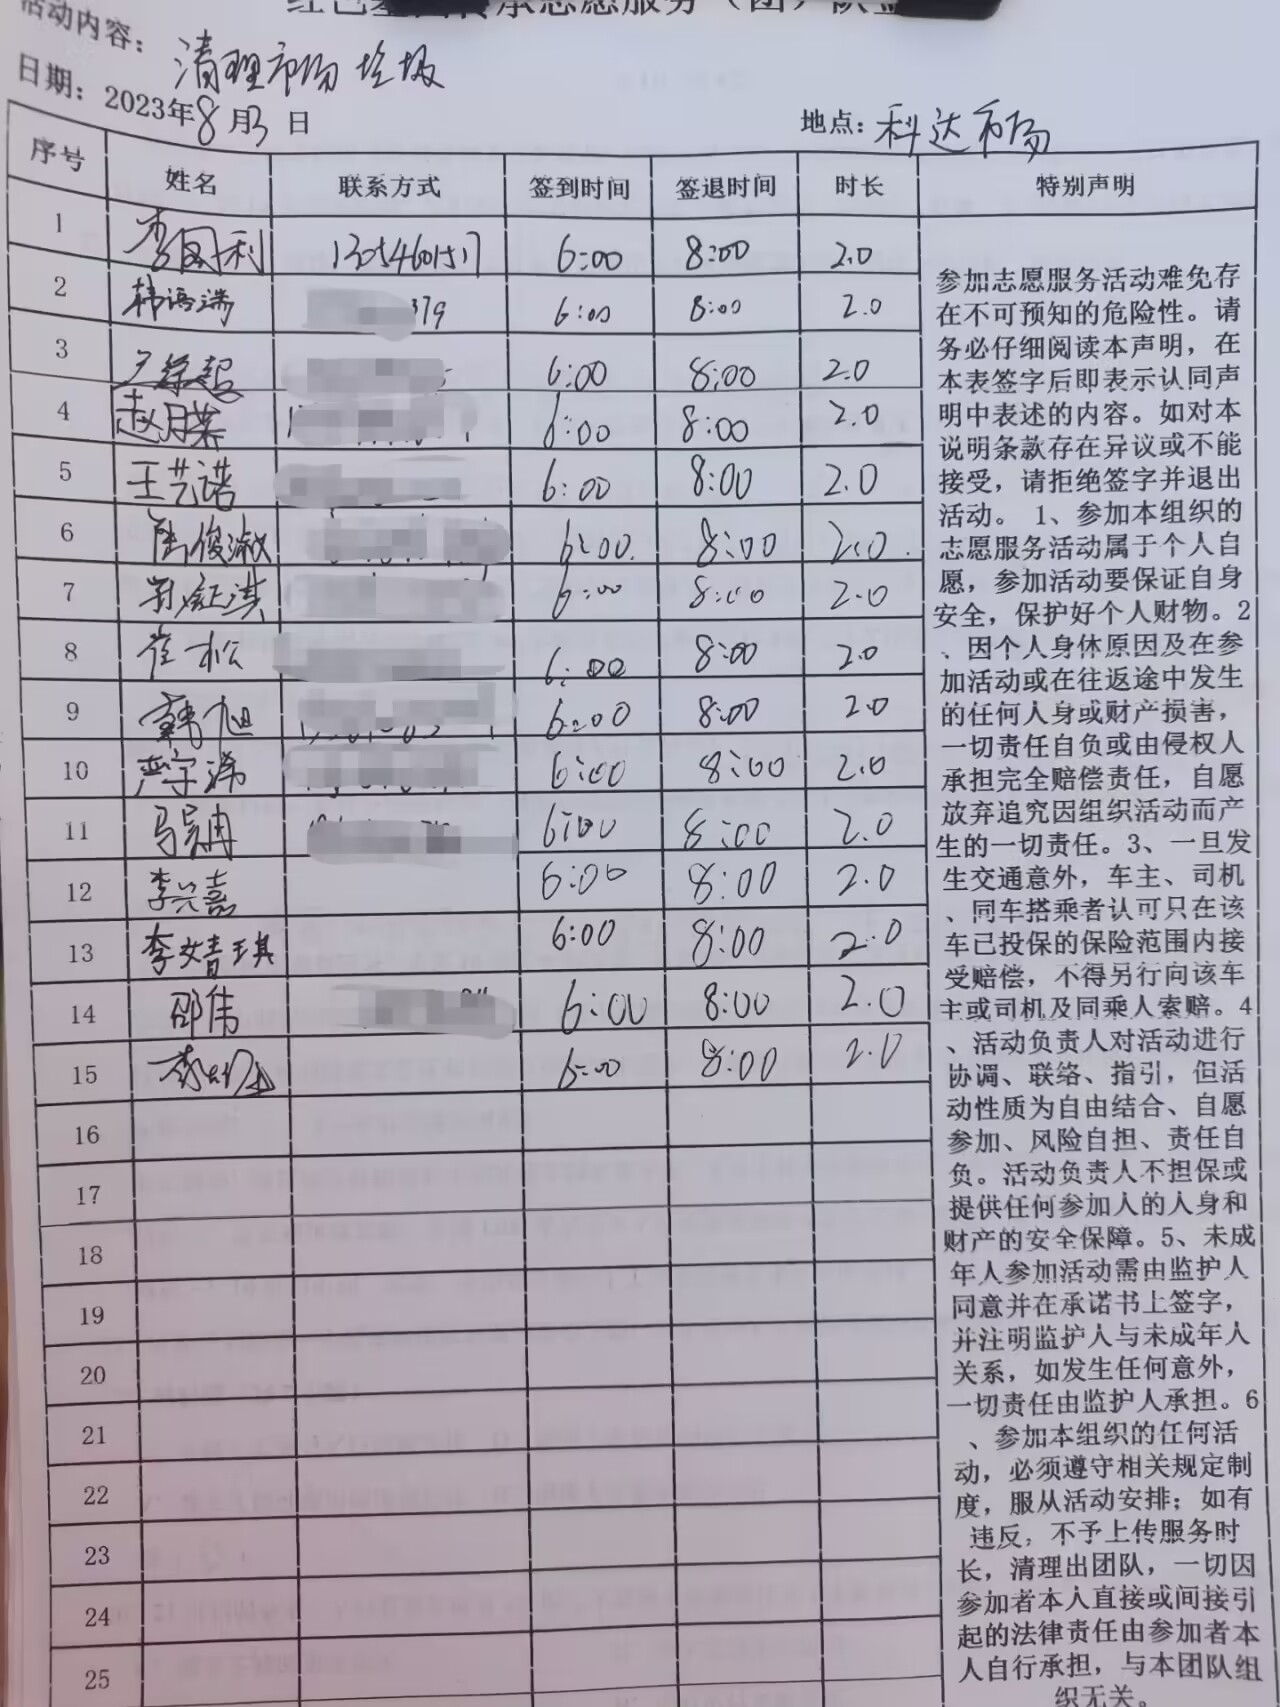 活动内容: 清理市场垃圾
日期: 2023年8月3日
地点: 科达市场
序号 姓名 联系方式 签到时间 签退时间 时长 特别声明
1 李国利 1305460151 6:00 8:00 2.0
2 韩语瑞 379 6:00 8:00 2.0
3 6:00 8:00 2.0
4 赵月荣 6:00 8:00 2.0
5 王艺诺 6:00 8:00 2.0
6 俊淑 6:00 8:00 2.0
7 刘钲淇 6:00 8:00 2.0
8 崔松 6:00 8:00 2.0
9 韩旭 6:00 8:00 2.0
10 严宇涕 6:00 8:00 2.0
11 6:00 8:00 2.0
12 李兴嘉 6:00 8:00 2.0
13 李文婧琪 6:00 8:00 2.0
14 邵伟 6:00 8:00 2.0
15 6:00 8:00 2.0
16
17
18
19
20
21
22
23
24
25
参加志愿服务活动难免存
在不可预知的危险性。请
务必仔细阅读本声明，在
本表签字后即表示认同声
明中表述的内容。如对本
说明条款存在异议或不能
接受，请拒绝签字并退出
活动。 1、参加本组织的
志愿服务活动属于个人自
愿，参加活动要保证自身
安全，保护好个人财物。2
、因个人身体原因及在参
加活动或在往返途中发生
的任何人身或财产损害，
一切责任自负或由侵权人
承担完全赔偿责任，自愿
放弃追究因组织活动而产
生的一切责任。3、一旦发
生交通意外，车主、司机
、同车搭乘者认可只在该
车已投保的保险范围内接
受赔偿，不得另行向该车
主或司机及同乘人索赔。4
、活动负责人对活动进行
协调、联络、指引，但活
动性质为自由结合、自愿
参加、风险自担、责任自
负。活动负责人不担保或
提供任何参加人的人身和
财产的安全保障。5、未成
年人参加活动需由监护人
同意并在承诺书上签字，
并注明监护人与未成年人
关系，如发生任何意外，
一切责任由监护人承担。6
、参加本组织的任何活
动，必须遵守相关规定制
度，服从活动安排；如有
违反，不予上传服务时
长，清理出团队，一切因
参加者本人直接或间接引
起的法律责任由参加者本
人自行承担，与本团队组
织无关。